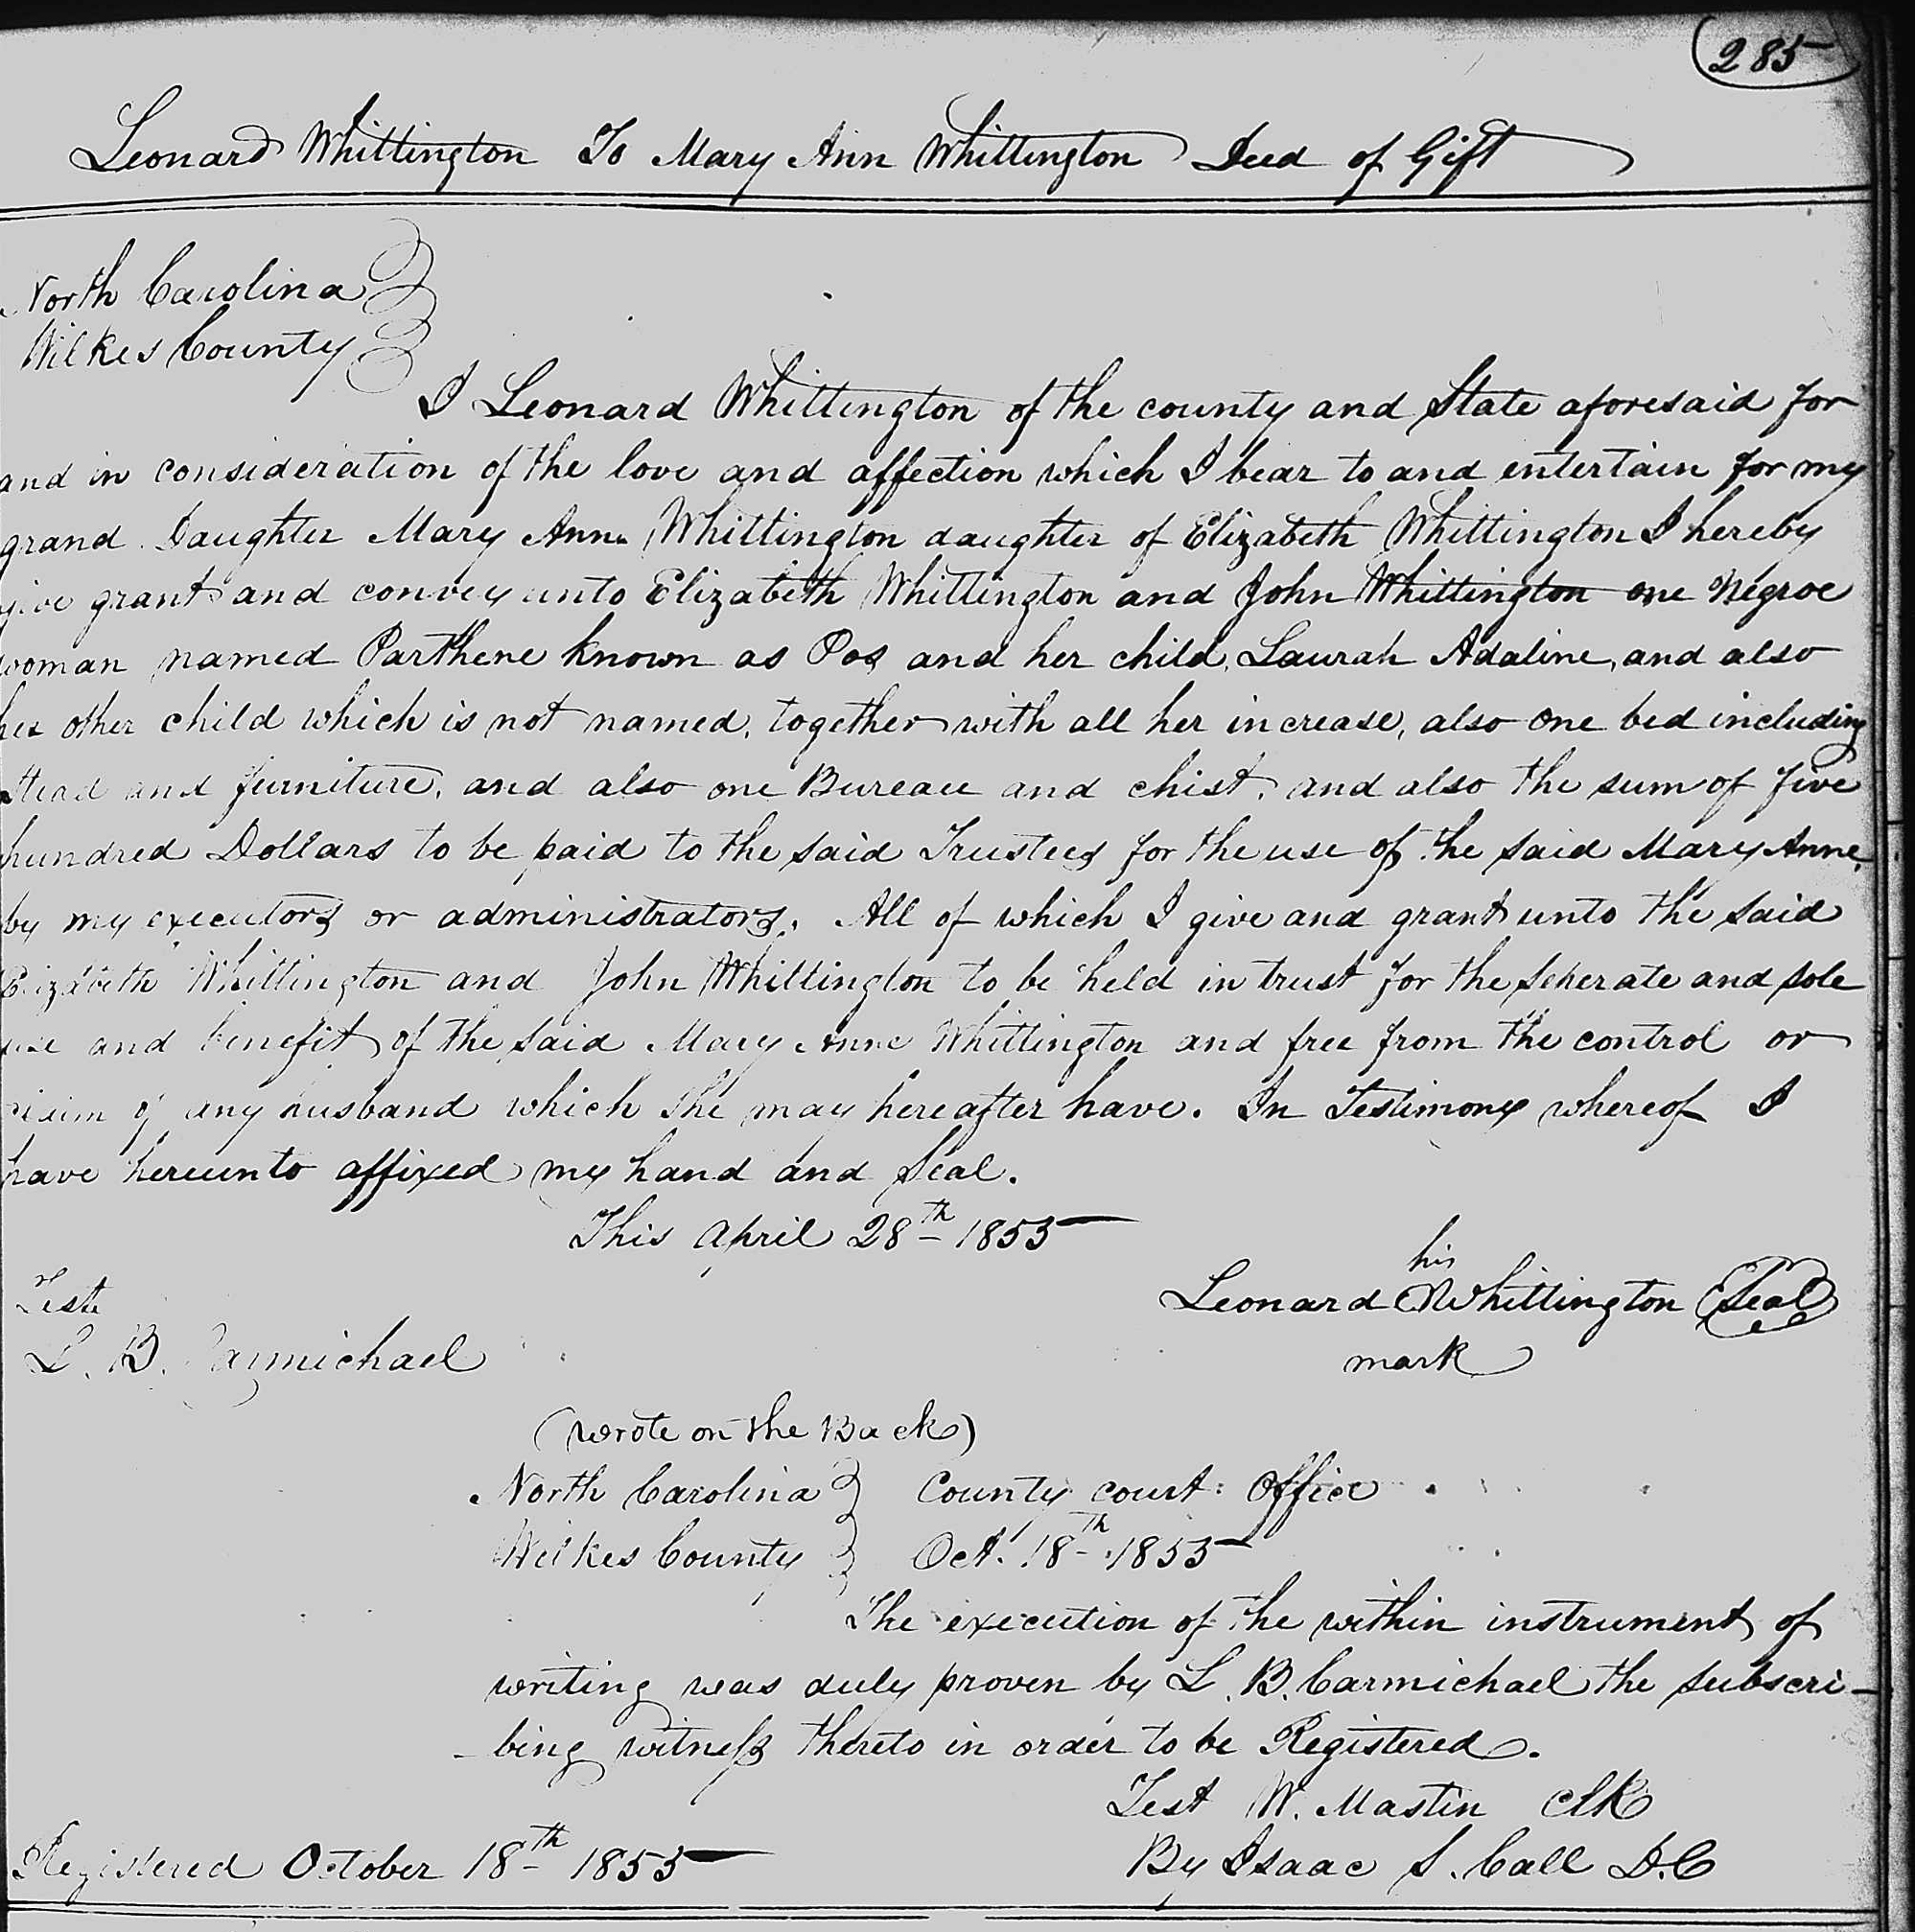 285
Leonard Whittington To Mary Ann Whittington Deed of Gift
North Carolina
Wilkes County
I Leonard Whittington of the county and State aforesaid for
and in consideration of the love and affection which I bear to and entertain for my
grand Daughter Mary Ann Whittington daughter of Elizabeth Whittington I hereby
give grant and convey unto Elizabeth Whittington and John Whittington one Negroe
woman named Parthene known as Pos and her child, Laurah Adaline, and also
her other child which is not named, together with all her increase, also one bed including
stead and furniture, and also one Bureau and chist, and also the sum of five
hundred Dollars to be paid to the said Trustees for the use of the said Mary Anne,
by my executors or administrators. All of which I give and grant unto the said
Elizabeth Whittington and John Whittington to be held in trust for the seperate and sole
use and benefit of the said Mary Anne Whittington and free from the control or
claim of any husband which she may hereafter have. In Testimony whereof I
have hereunto affixed my hand and Seal.
This April 28th 1855
his
Leonard X Whittington (Seal)
mark
Teste
L. B. Carmichael
(wrote on the Back)
North Carolina } County court Office
Wilkes County } Oct. 18th 1855
The execution of the within instrument of
writing was duly proven by L. B. Carmichael the subscri-
-bing witness thereto in order to be Registered.
Test W. Mastin Clk
By Isaac S. Call D.C
Registered October 18th 1855